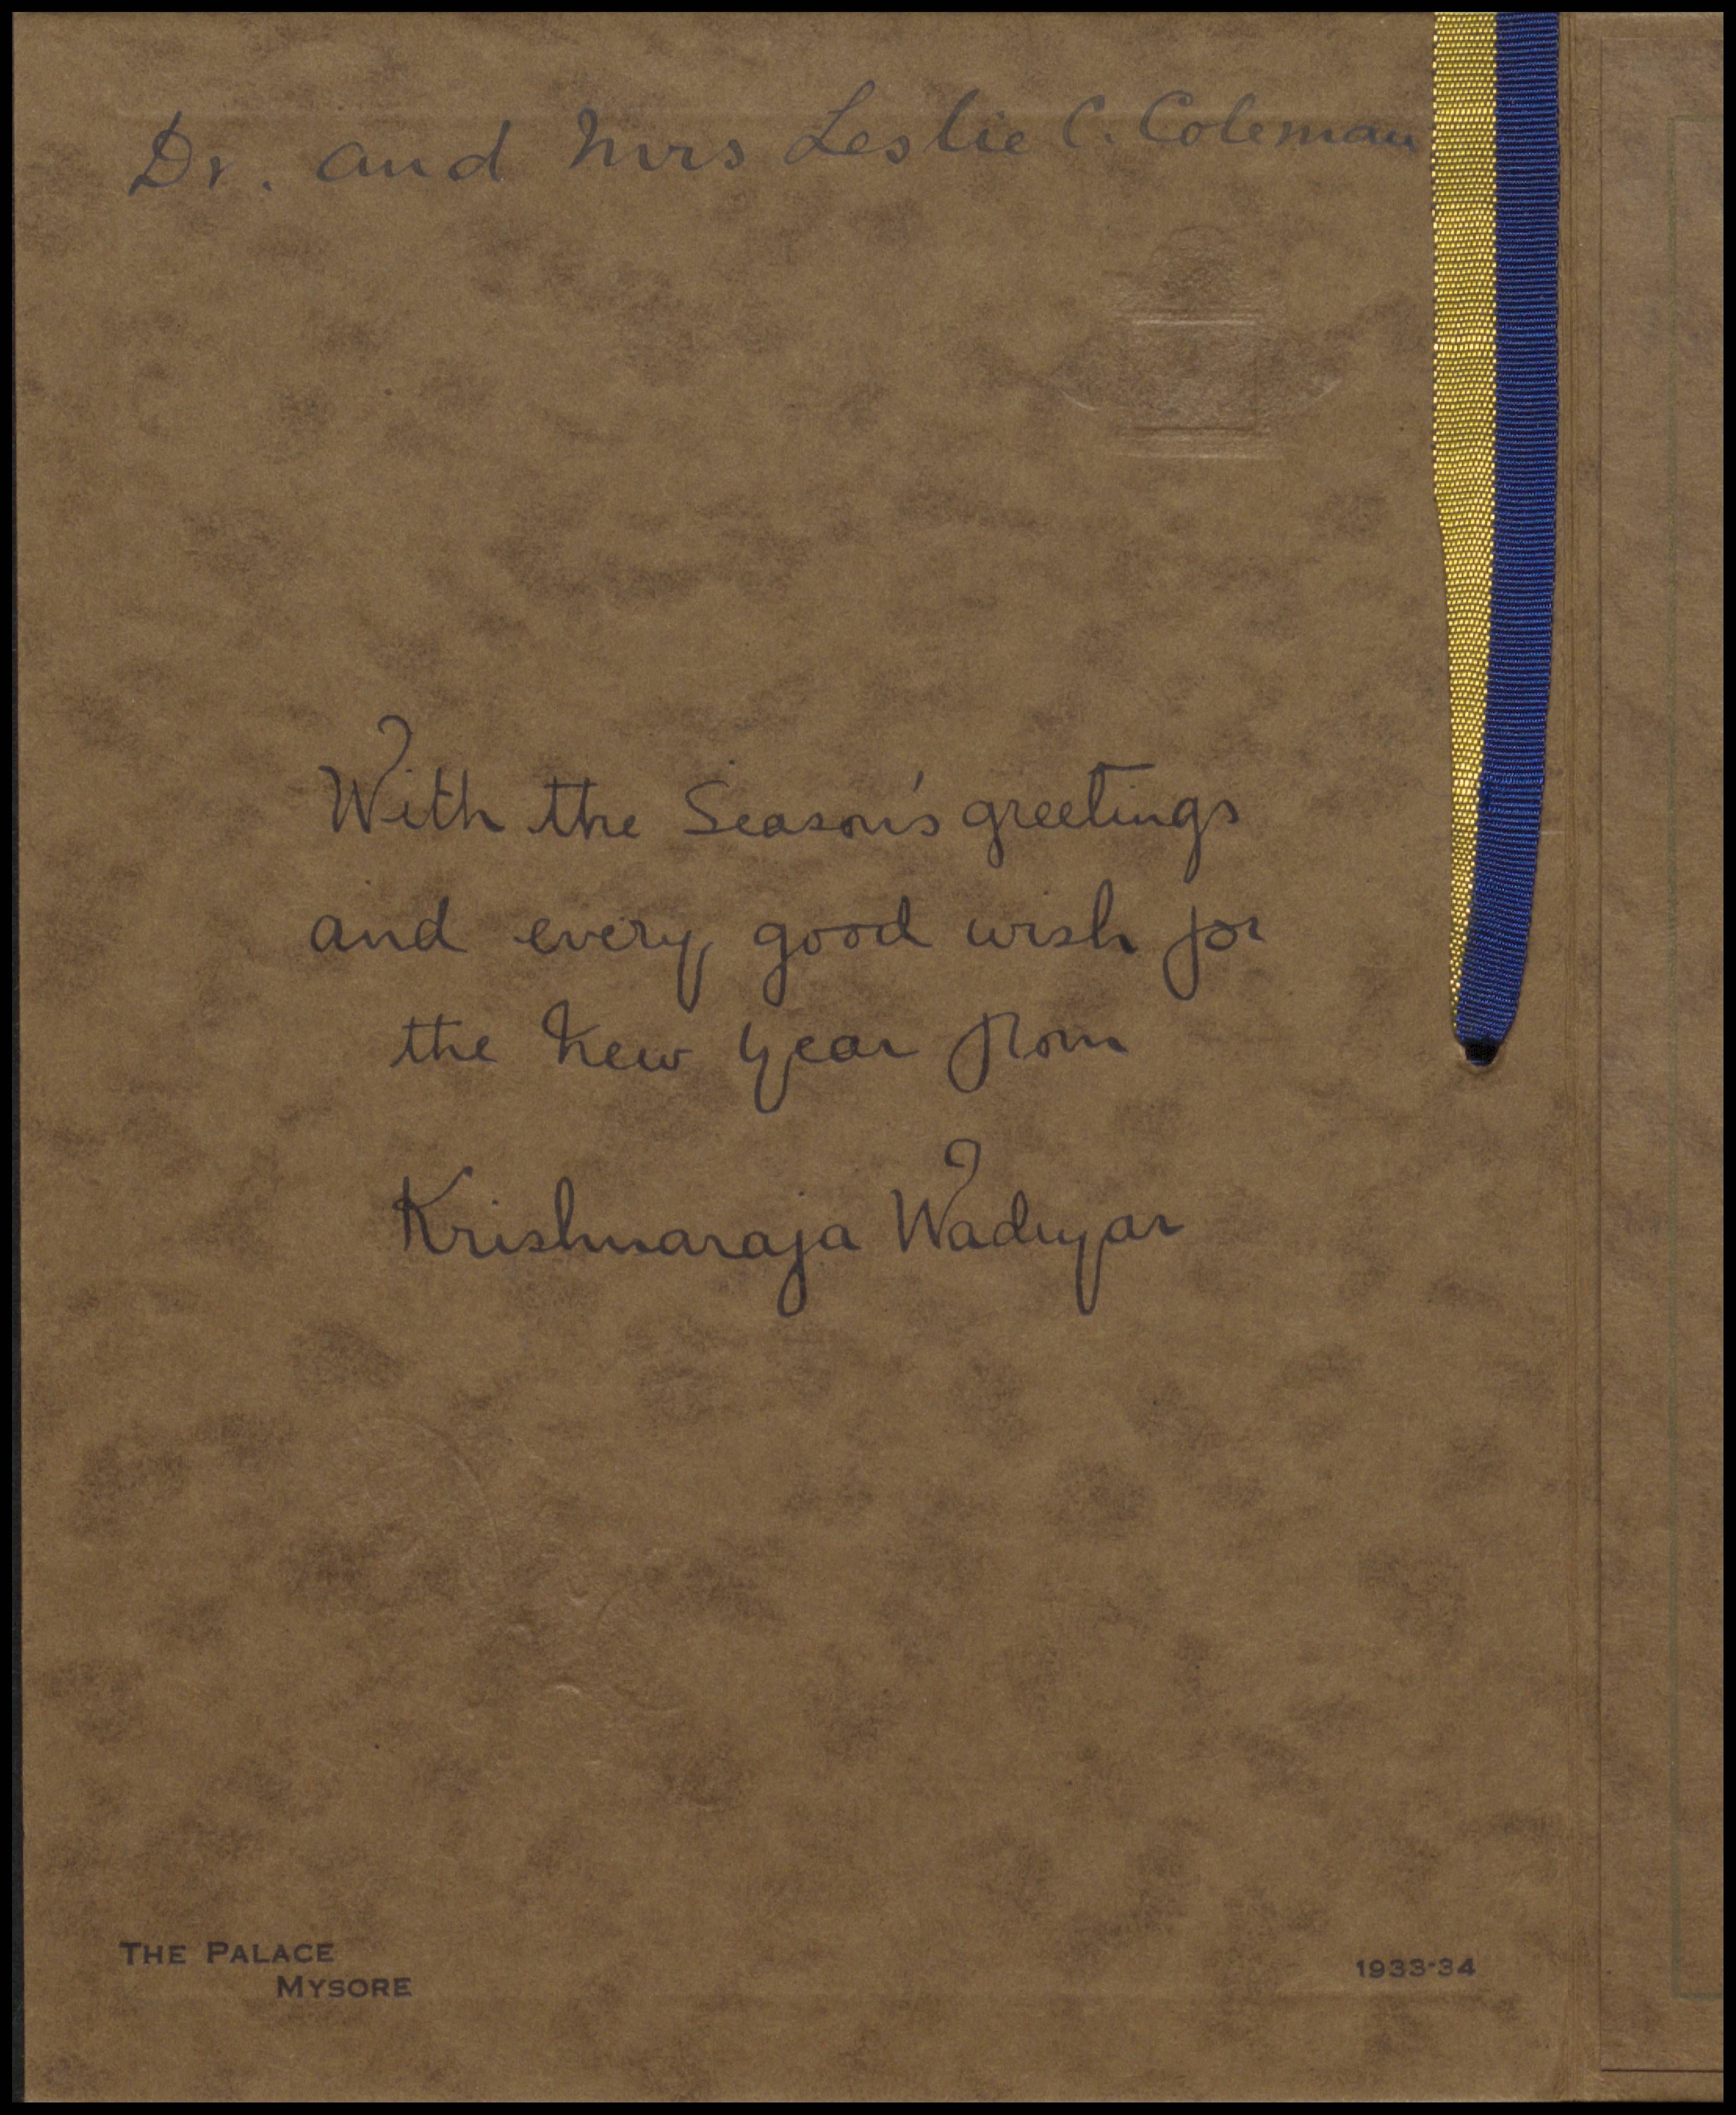 Dr. and Mrs Leslie C. Coleman
With the Season's greetings
and every good wish for
the New Year from
Krishnaraja Wadiyar
THE PALACE
MYSORE
1933-34